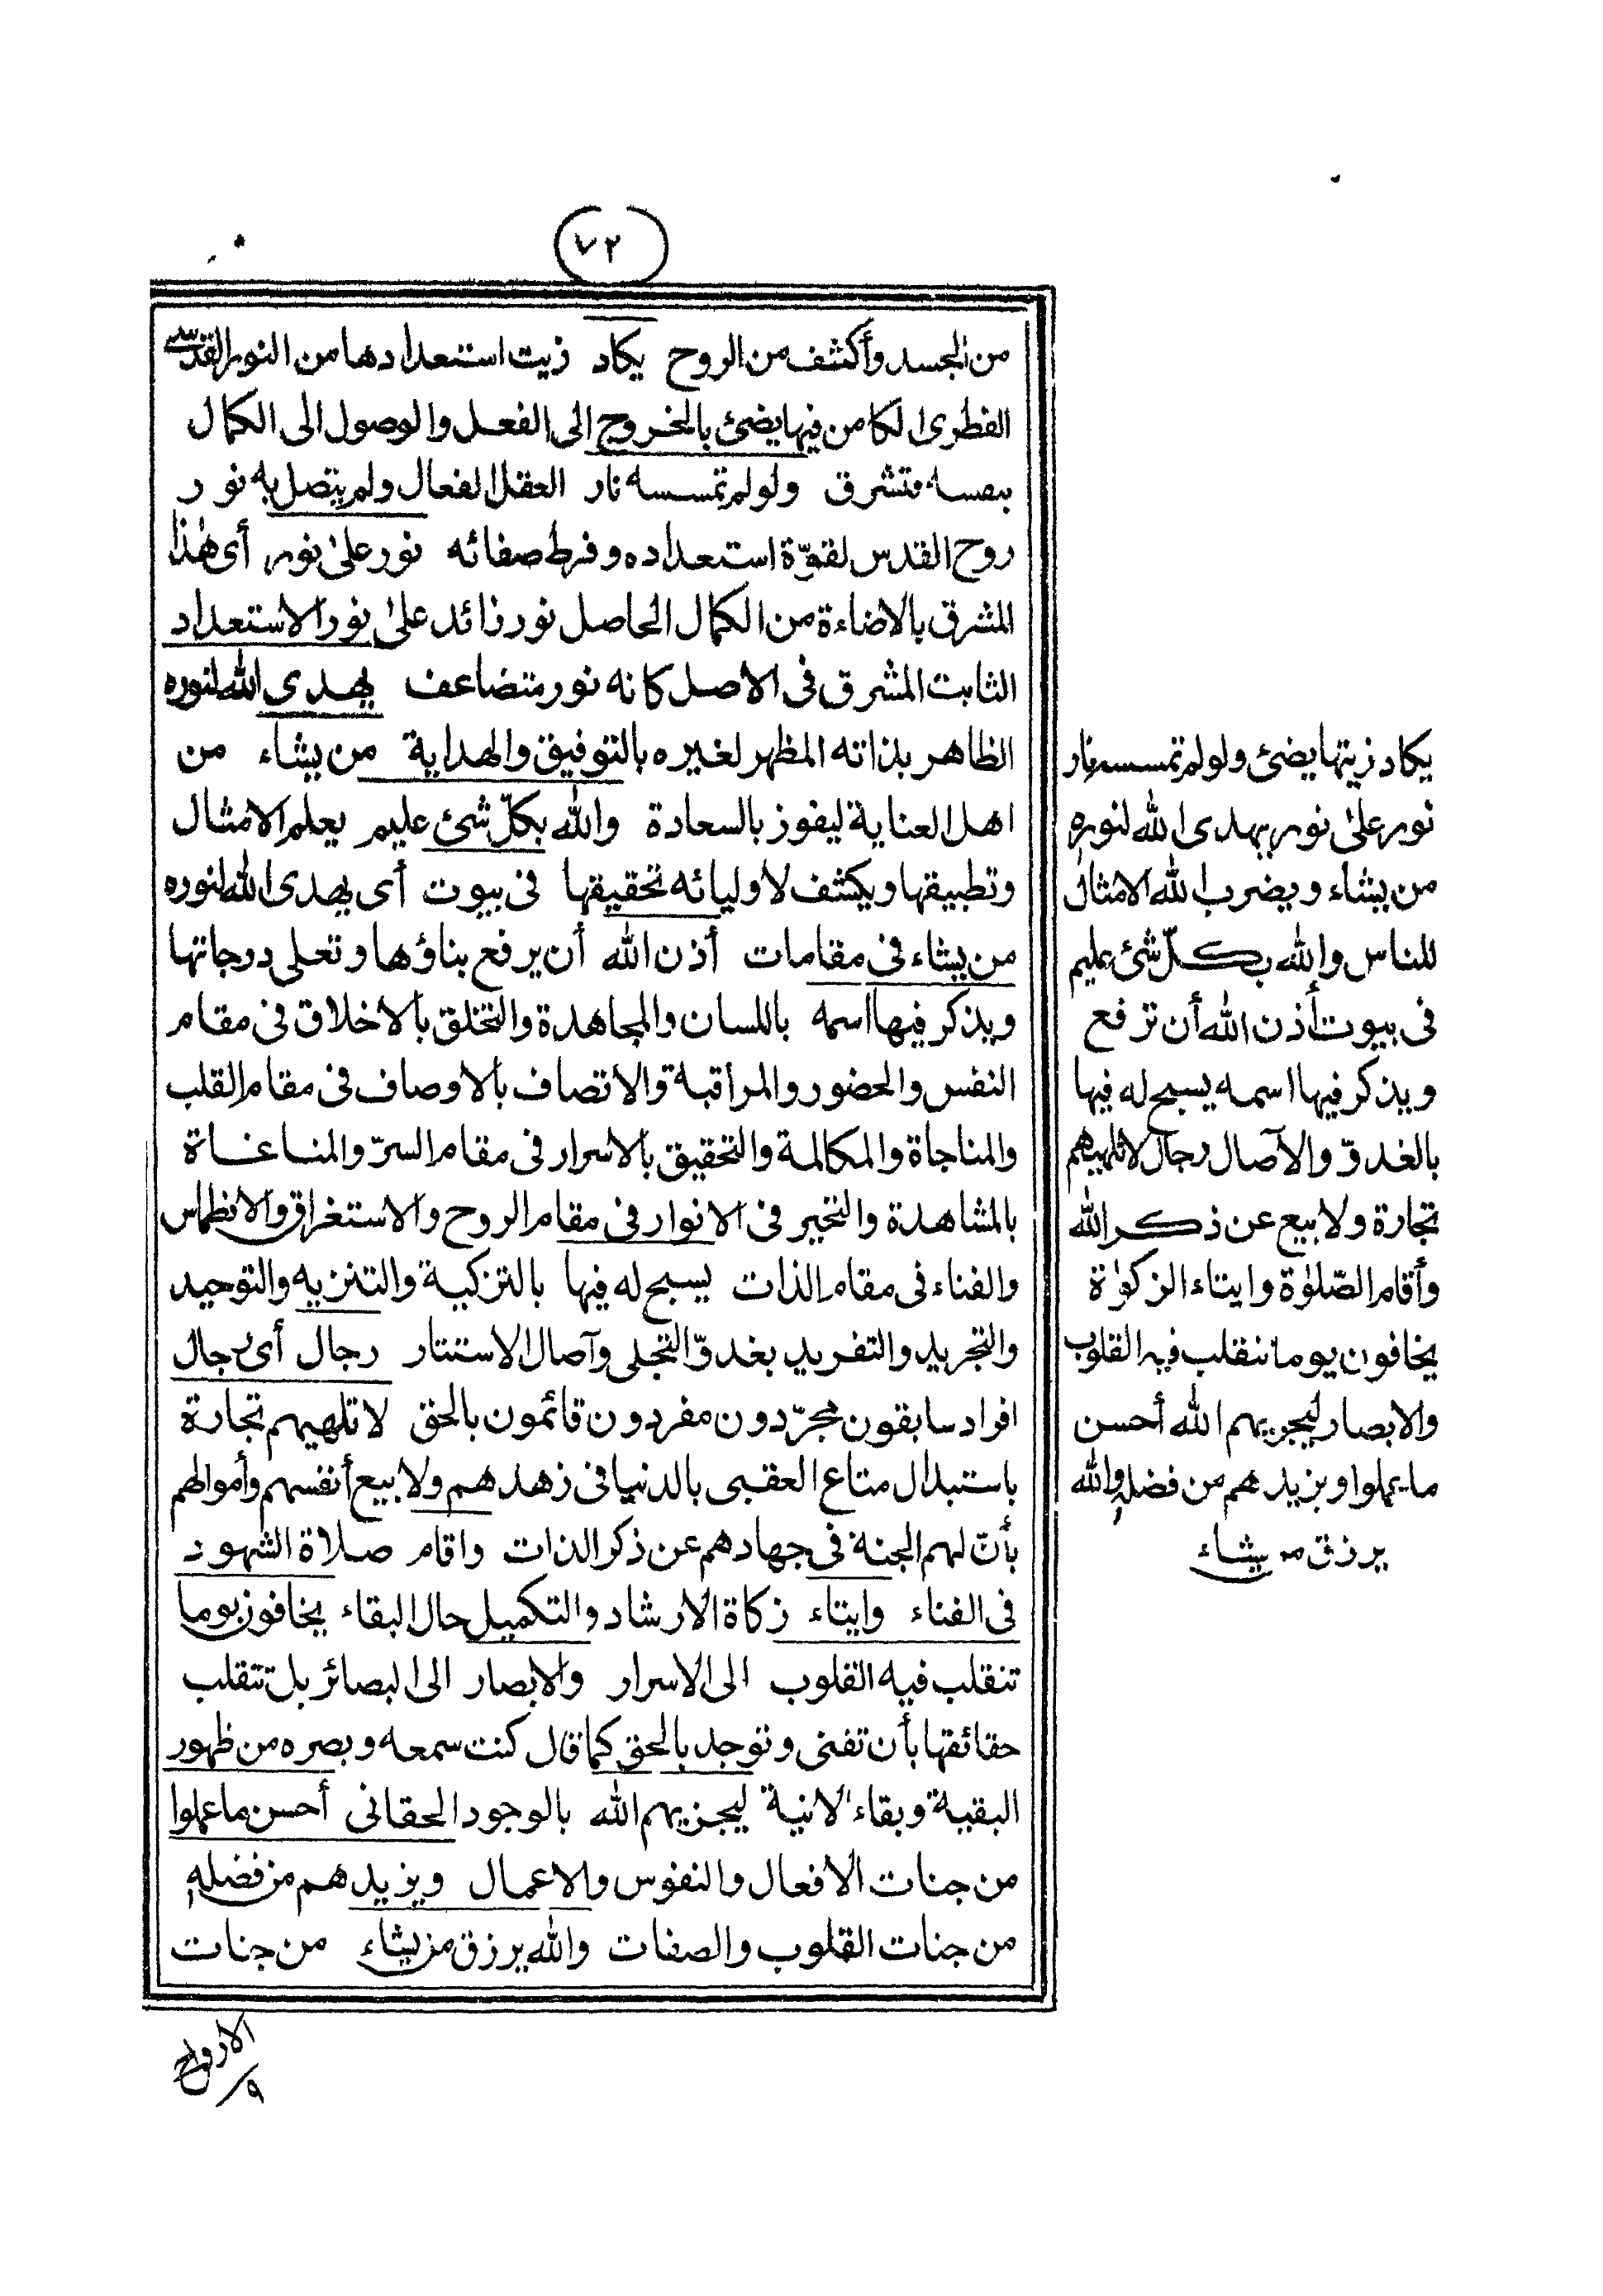 ٧٢
من الجسد وأكشف من الروح يكاد زيت استعدادها من النور القدسي
الفطرى الكامن فيها يضئ بالخروج الى الفعل والوصول الى الكمال
بنفسه فتشرق ولو لم تمسسه نار العقل الفعال ولم يتصل به نور
روح القدس لقوّة استعداده وفرط صفائه نور على نور أى هذا
المشرق بالاضاءة من الكمال الحاصل نور زائد على نور الاستعداد
الثابت المشرق فى الاصل كانه نور متضاعف يهدى الله لنوره
الظاهر بذاته المظهر لغيره بالتوفيق والهداية من يشاء من
اهل العناية ليفوز بالسعادة والله بكلّ شئ عليم يعلم الامثال
وتطبيقها ويكشف لاوليائه تحقيقها فى بيوت أى يهدى الله لنوره
من يشاء فى مقامات أذن الله أن يرفع بناؤها وتعلى درجاتها
ويذكر فيها اسمه باللسان والمجاهدة والتخلق بالاخلاق فى مقام
النفس والحضور والمراقبة والاتصاف بالاوصاف فى مقام القلب
والمناجاة والمكالمة والتحقيق بالاسرار فى مقام السرّ والمناغاة
بالمشاهدة والتحير فى الانوار فى مقام الروح والاستغراق والانطماس
والفناء فى مقام الذات يسبح له فيها بالتزكية والتنزيه والتوحيد
والتجريد والتفريد بغدوّ التجلى وآصال الاستتار رجال أى رجال
افراد سابقون مجرّدون مفردون قائمون بالحق لا تلهيهم تجارة
باستبدال متاع العقبى بالدنيا فى زهدهم ولا بيع أنفسهم وأموالهم
بأنّ لهم الجنة فى جهادهم عن ذكر الذات واقام صلاة الشهود
فى الفناء وايتاء زكاة الارشاد والتكميل حال البقاء يخافون يوما
تنقلب فيه القلوب الى الاسرار والابصار الى البصائر بل تتقلب
حقائقها بأن تفنى وتوجد بالحق كما قال كنت سمعه وبصره من ظهور
البقية وبقاء الانية ليجزيهم الله بالوجود الحقانى أحسن ما عملوا
من جنات الافعال والنفوس والاعمال ويزيدهم من فضله
من جنات القلوب والصفات والله يرزق من يشاء من جنات
يكاد زيتها يضئ ولو لم تمسسه نار
نور على نور يهدى الله لنوره
من يشاء ويضرب الله الامثال
للناس والله بكلّ شئ عليم
فى بيوت أذن الله أن ترفع
ويذكر فيها اسمه يسبح له فيها
بالغدوّ والآصال رجال لا تلهيهم
تجارة ولا بيع عن ذكر الله
وأقام الصّلوٰة وايتاء الزكوٰة
يخافون يوما تنقلب فيه القلوب
والابصار ليجزيهم الله أحسن
ما عملوا ويزيدهم من فضله والله
يرزق من يشاء
الارواح
٩